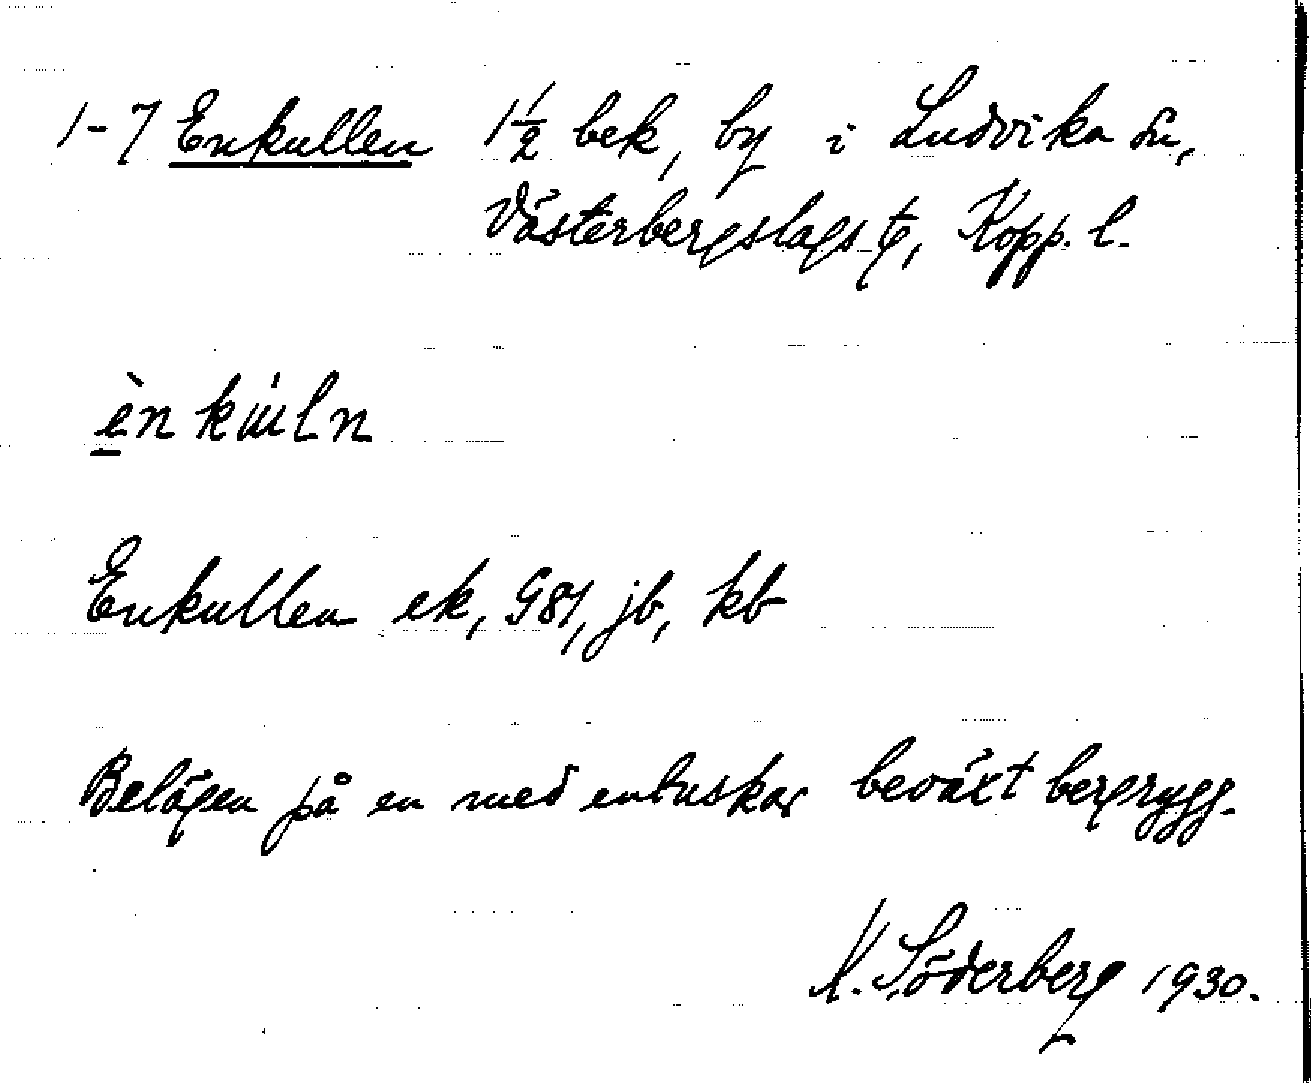 1-7 Enkullen 1½ bek, by i Ludvika sn,
Västerbergslags t, Kopp. l.
èn kuln
Enkullen ek, G81, jb, kb
Belägen på en med enbuskar beväxt bergrygg.
K. Söderberg 1930.